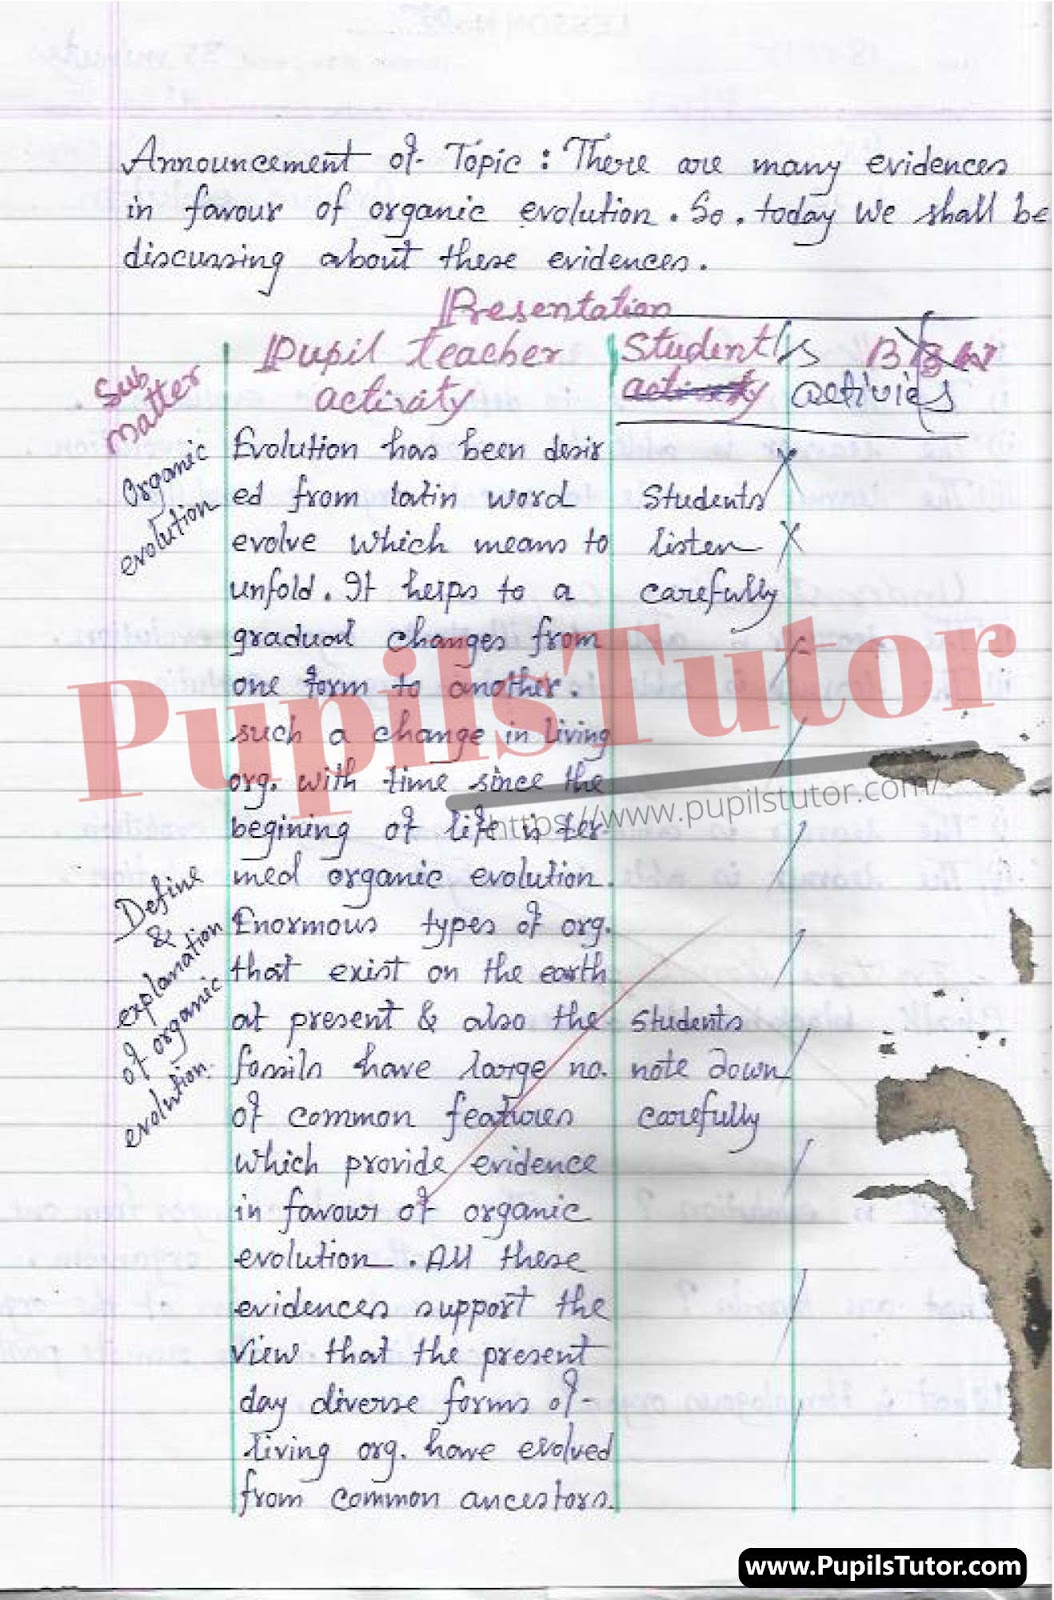 Announcement of Topic : There are many evidences
in favour of organic evolution. So. today we shall be
discussing about these evidences.
Presentation
Sub matter
Pupil teacher activity
Student's
activities
Organic evolution
Evolution has been desir
ed from latin word
evolve which means to
unfold. It helps to a
gradual changes from
one form to another.
such a change in living
org. with time since the
begining of life is ter-
med organic evolution.
Students
listen
carefully
Define
&
explanation
of organic
evolution.
Enormous types of org.
that exist on the earth
at present & also the
fossils have large no.
of common features
which provide evidence
in favour of organic
evolution. All these
evidences support the
view that the present
day diverse forms of
living org. have evolved
from common ancestors.
Students
note down
carefully
PupilsTutor
https://www.pupilstutor.com/
www.PupilsTutor.com